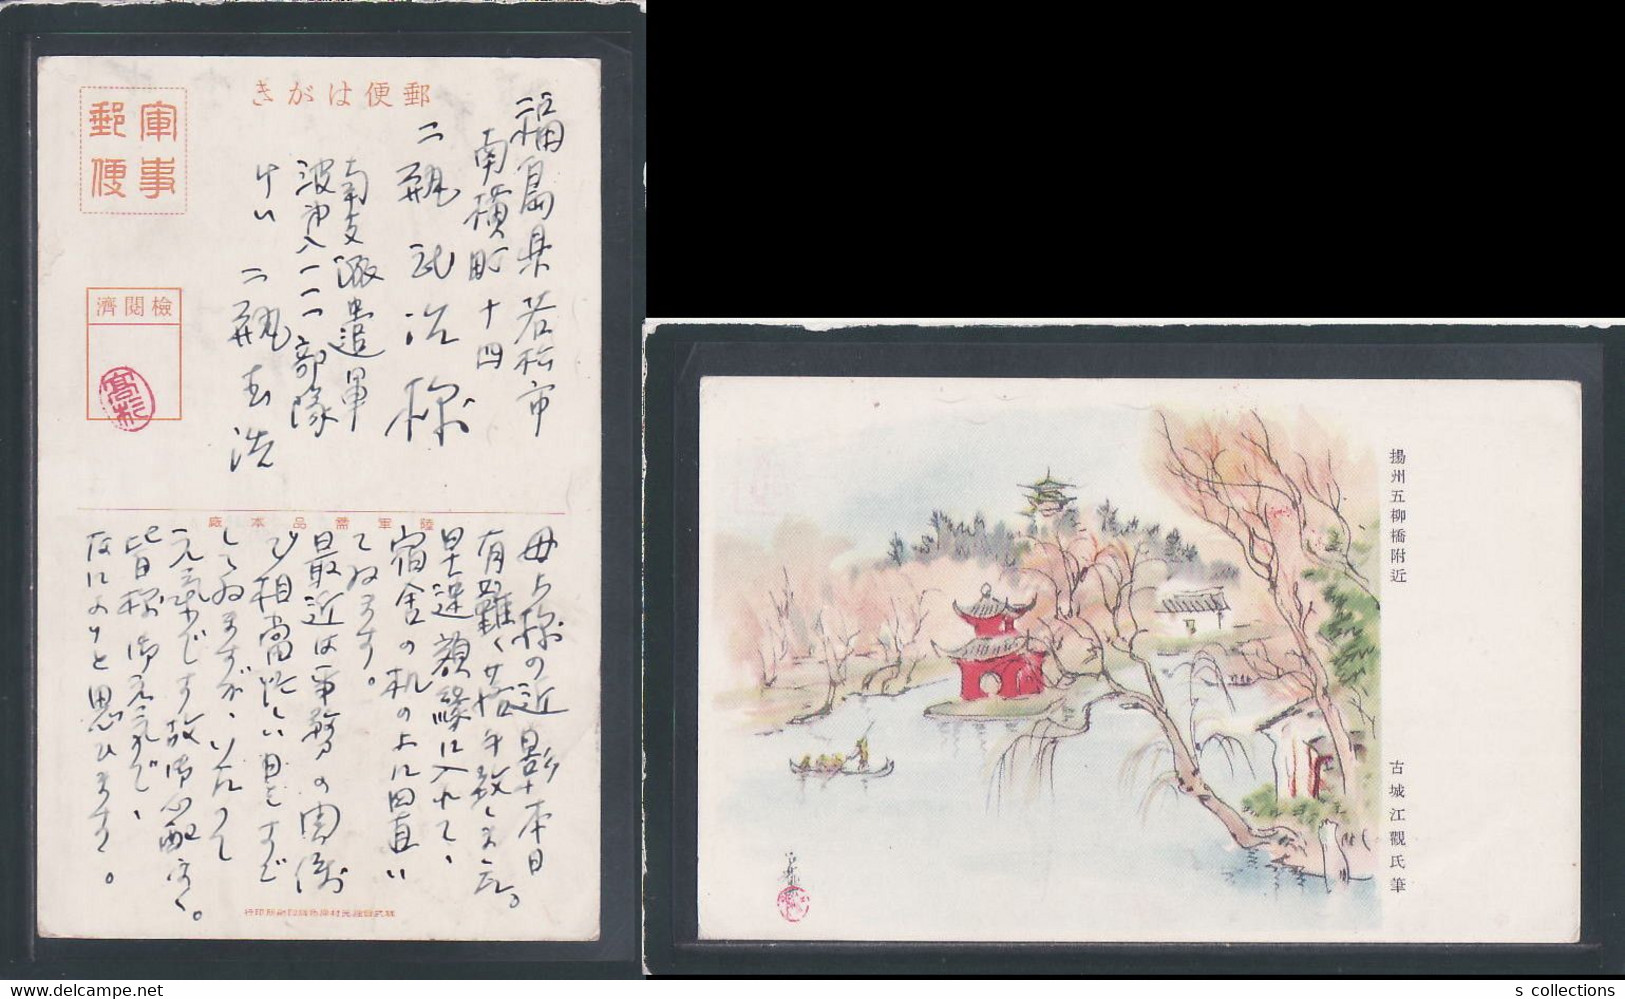 郵便はがき
軍事
郵便
検閲済
高杉
福島県若松市
南横町十四
二瓶武治様
南支派遣軍
波第八一一一部隊
二瓶
陸軍需品本廠
母上様の近影本日
有難く拝受致しました。
早速額縁に入れて、
宿舎の机の上に置い
てゐます。
最近は事務の関係
で相当忙しい日をすご
してゐますが、いたって
元気です故御心配なく。
皆様御元気で、
なによりと思ひます。
揚州五柳橋附近
古城江觀氏筆
s collections